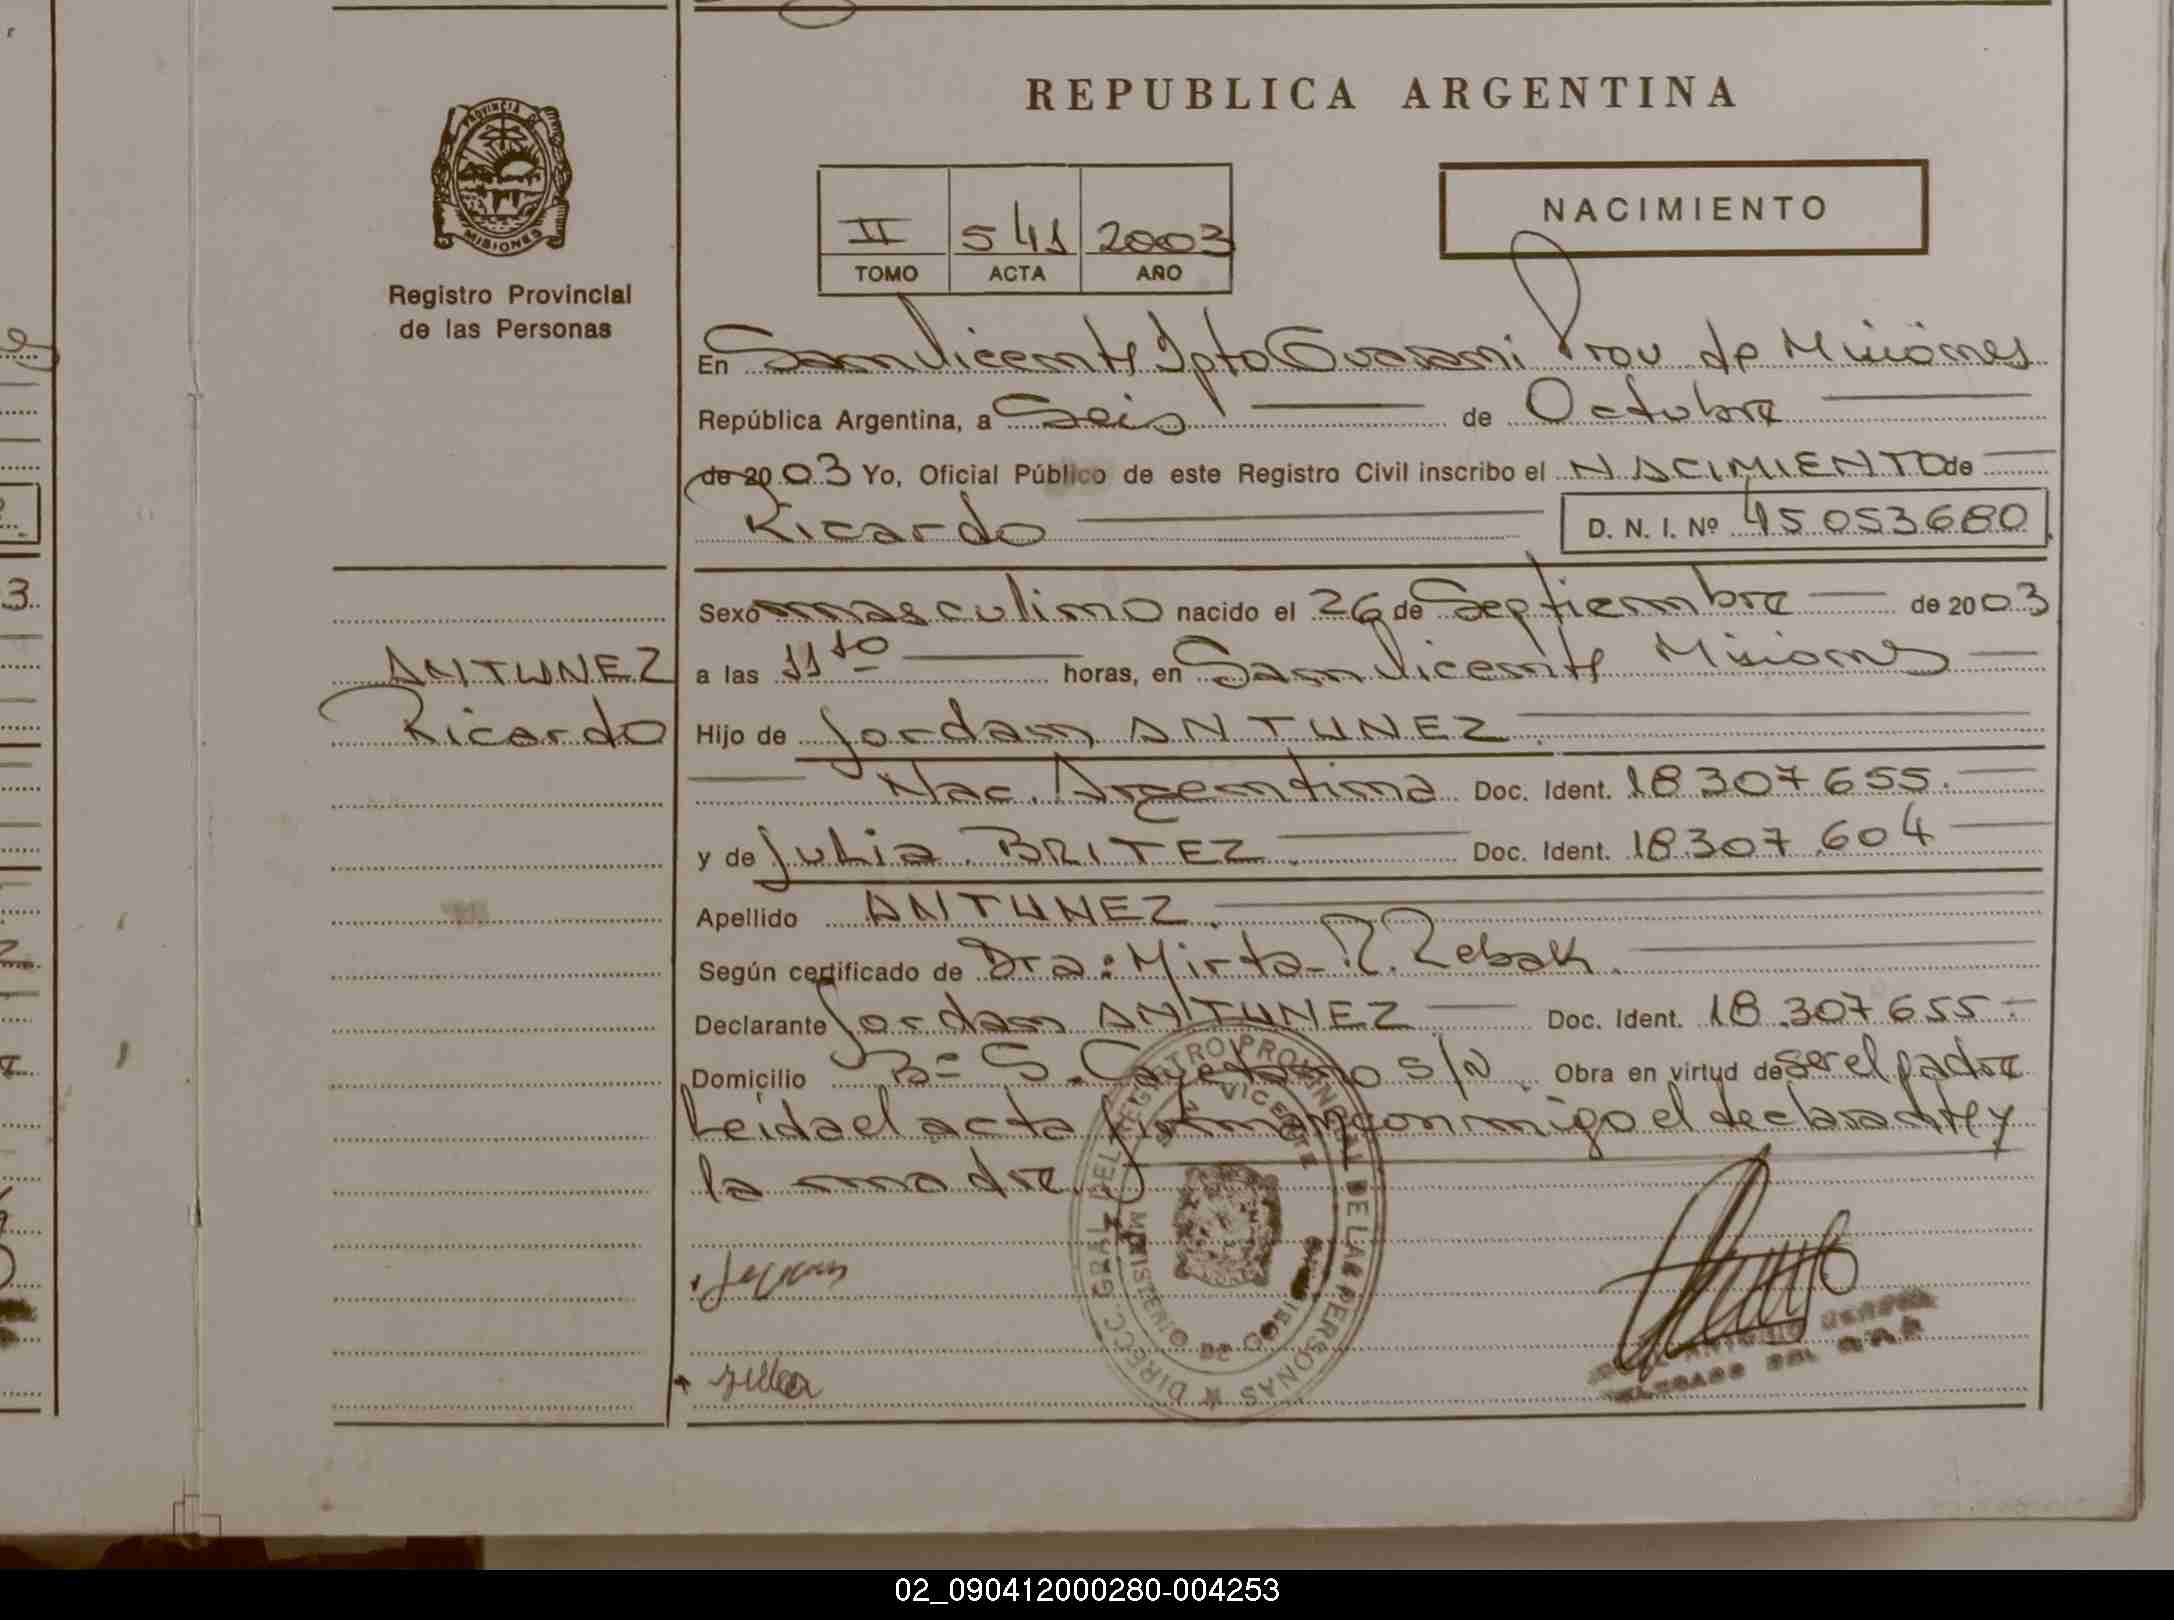 REPUBLICA ARGENTINA
PROVINCIA DE
MISIONES
Registro Provincial
de las Personas
II 541 2003
TOMO ACTA AÑO
NACIMIENTO
En San Vicente Dpto Guarani Prov de Misiones
República Argentina, a Seis de Octubre
de 2003 Yo, Oficial Público de este Registro Civil inscribo el NACIMIENTO de
Ricardo D. N. I. Nº 45053680
Sexo masculino nacido el 26 de Septiembre de 2003
ANTUNEZ
Ricardo
a las 11 10 horas, en San Vicente Misiones
Hijo de Jordan ANTUNEZ.
Nac. Argentina Doc. Ident. 18307655.
y de Julia BRITEZ. Doc. Ident. 18307604
Apellido ANTUNEZ.
Según certificado de Dra: Mirta R. Rebak.
Declarante Jordan ANTUNEZ Doc. Ident. 18.307655.
Domicilio Bº S. Cayetano s/N. Obra en virtud de ser el padre
Leída el acta firman conmigo el declarante y
la madre.
DIRECC. GRAL DEL REGISTRO PROVINCIAL DE LAS PERSONAS
VICENTE
MINISTERIO DE GOBIERNO
02_090412000280-004253